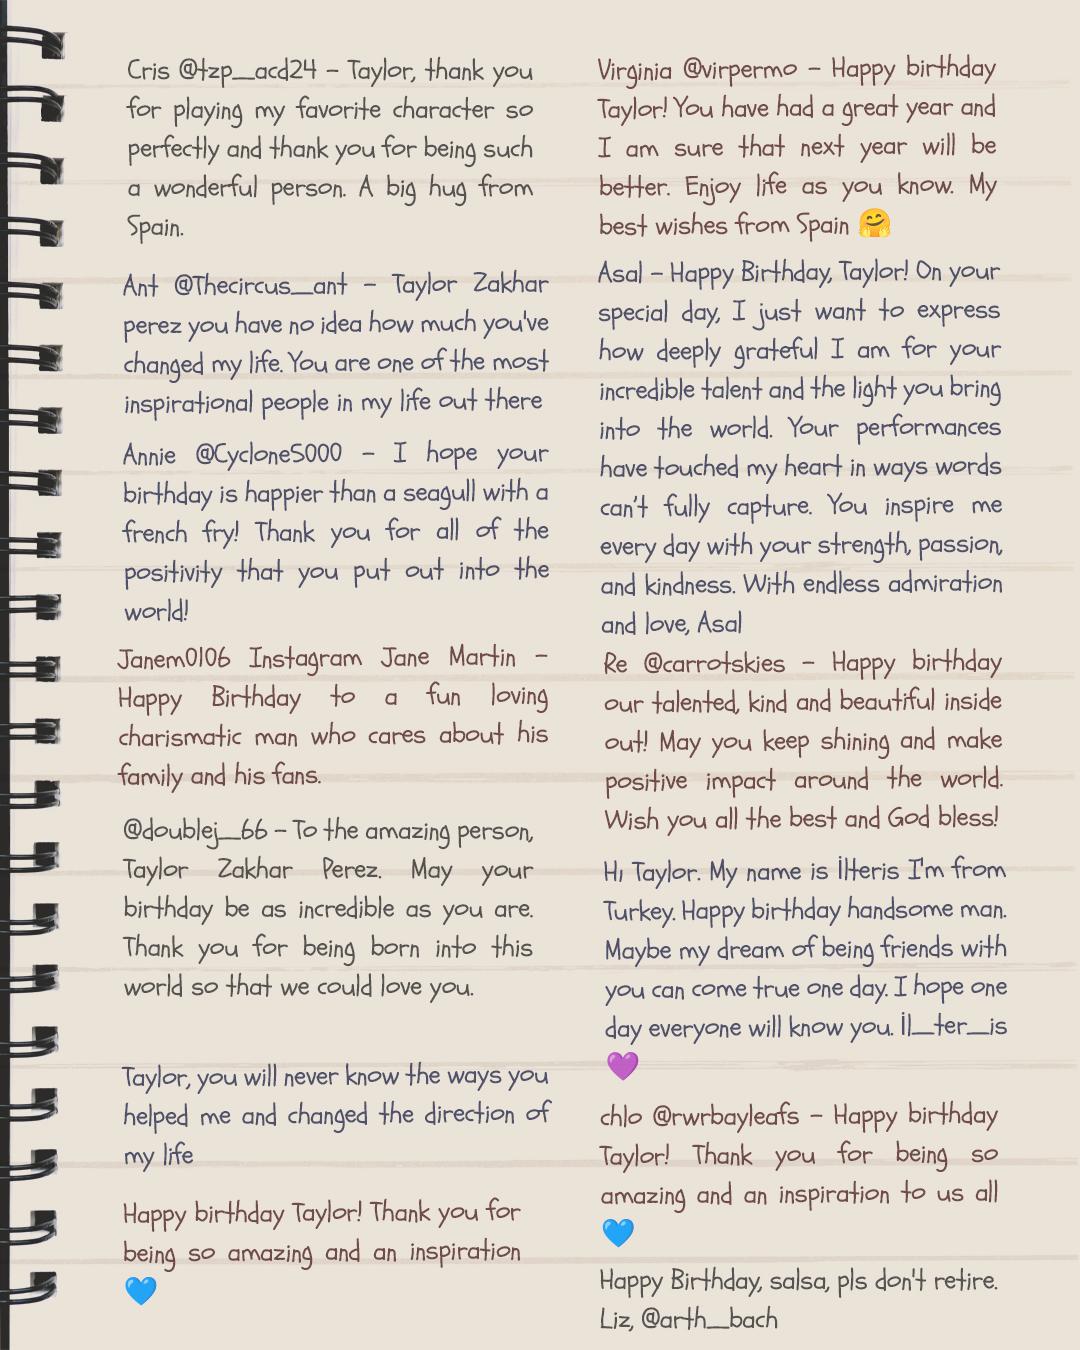 Cris @tzp__acd24 – Taylor, thank you
for playing my favorite character so
perfectly and thank you for being such
a wonderful person. A big hug from
Spain.
Ant @Thecircus__ant – Taylor Zakhar
perez you have no idea how much you've
changed my life. You are one of the most
inspirational people in my life out there
Annie @Cyclone5000 – I hope your
birthday is happier than a seagull with a
french fry! Thank you for all of the
positivity that you put out into the
world!
Janem0106 Instagram Jane Martin –
Happy Birthday to a fun loving
charismatic man who cares about his
family and his fans.
@doublej__66 – To the amazing person,
Taylor Zakhar Perez. May your
birthday be as incredible as you are.
Thank you for being born into this
world so that we could love you.
Taylor, you will never know the ways you
helped me and changed the direction of
my life
Happy birthday Taylor! Thank you for
being so amazing and an inspiration
💙
Virginia @virpermo – Happy birthday
Taylor! You have had a great year and
I am sure that next year will be
better. Enjoy life as you know. My
best wishes from Spain 🤗
Asal – Happy Birthday, Taylor! On your
special day, I just want to express
how deeply grateful I am for your
incredible talent and the light you bring
into the world. Your performances
have touched my heart in ways words
can't fully capture. You inspire me
every day with your strength, passion,
and kindness. With endless admiration
and love, Asal
Re @carrotskies – Happy birthday
our talented, kind and beautiful inside
out! May you keep shining and make
positive impact around the world.
Wish you all the best and God bless!
Hı Taylor. My name is İlteris I'm from
Turkey. Happy birthday handsome man.
Maybe my dream of being friends with
you can come true one day. I hope one
day everyone will know you. İl__ter__is
💜
chlo @rwrbayleafs – Happy birthday
Taylor! Thank you for being so
amazing and an inspiration to us all
💙
Happy Birthday, salsa, pls don't retire.
Liz, @arth__bach